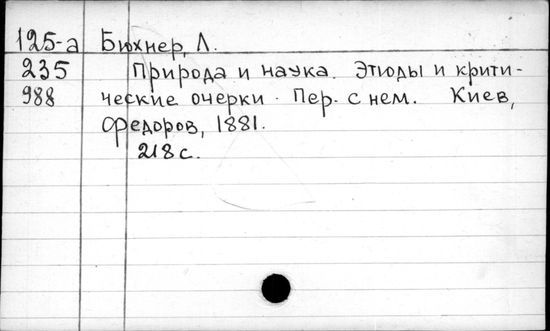 125-а Бюхнер, Л.
235 Природа и наука. Этюды и крити-
988 ческие очерки. Пер. с нем. Киев,
Федоров, 1881.
218 с.